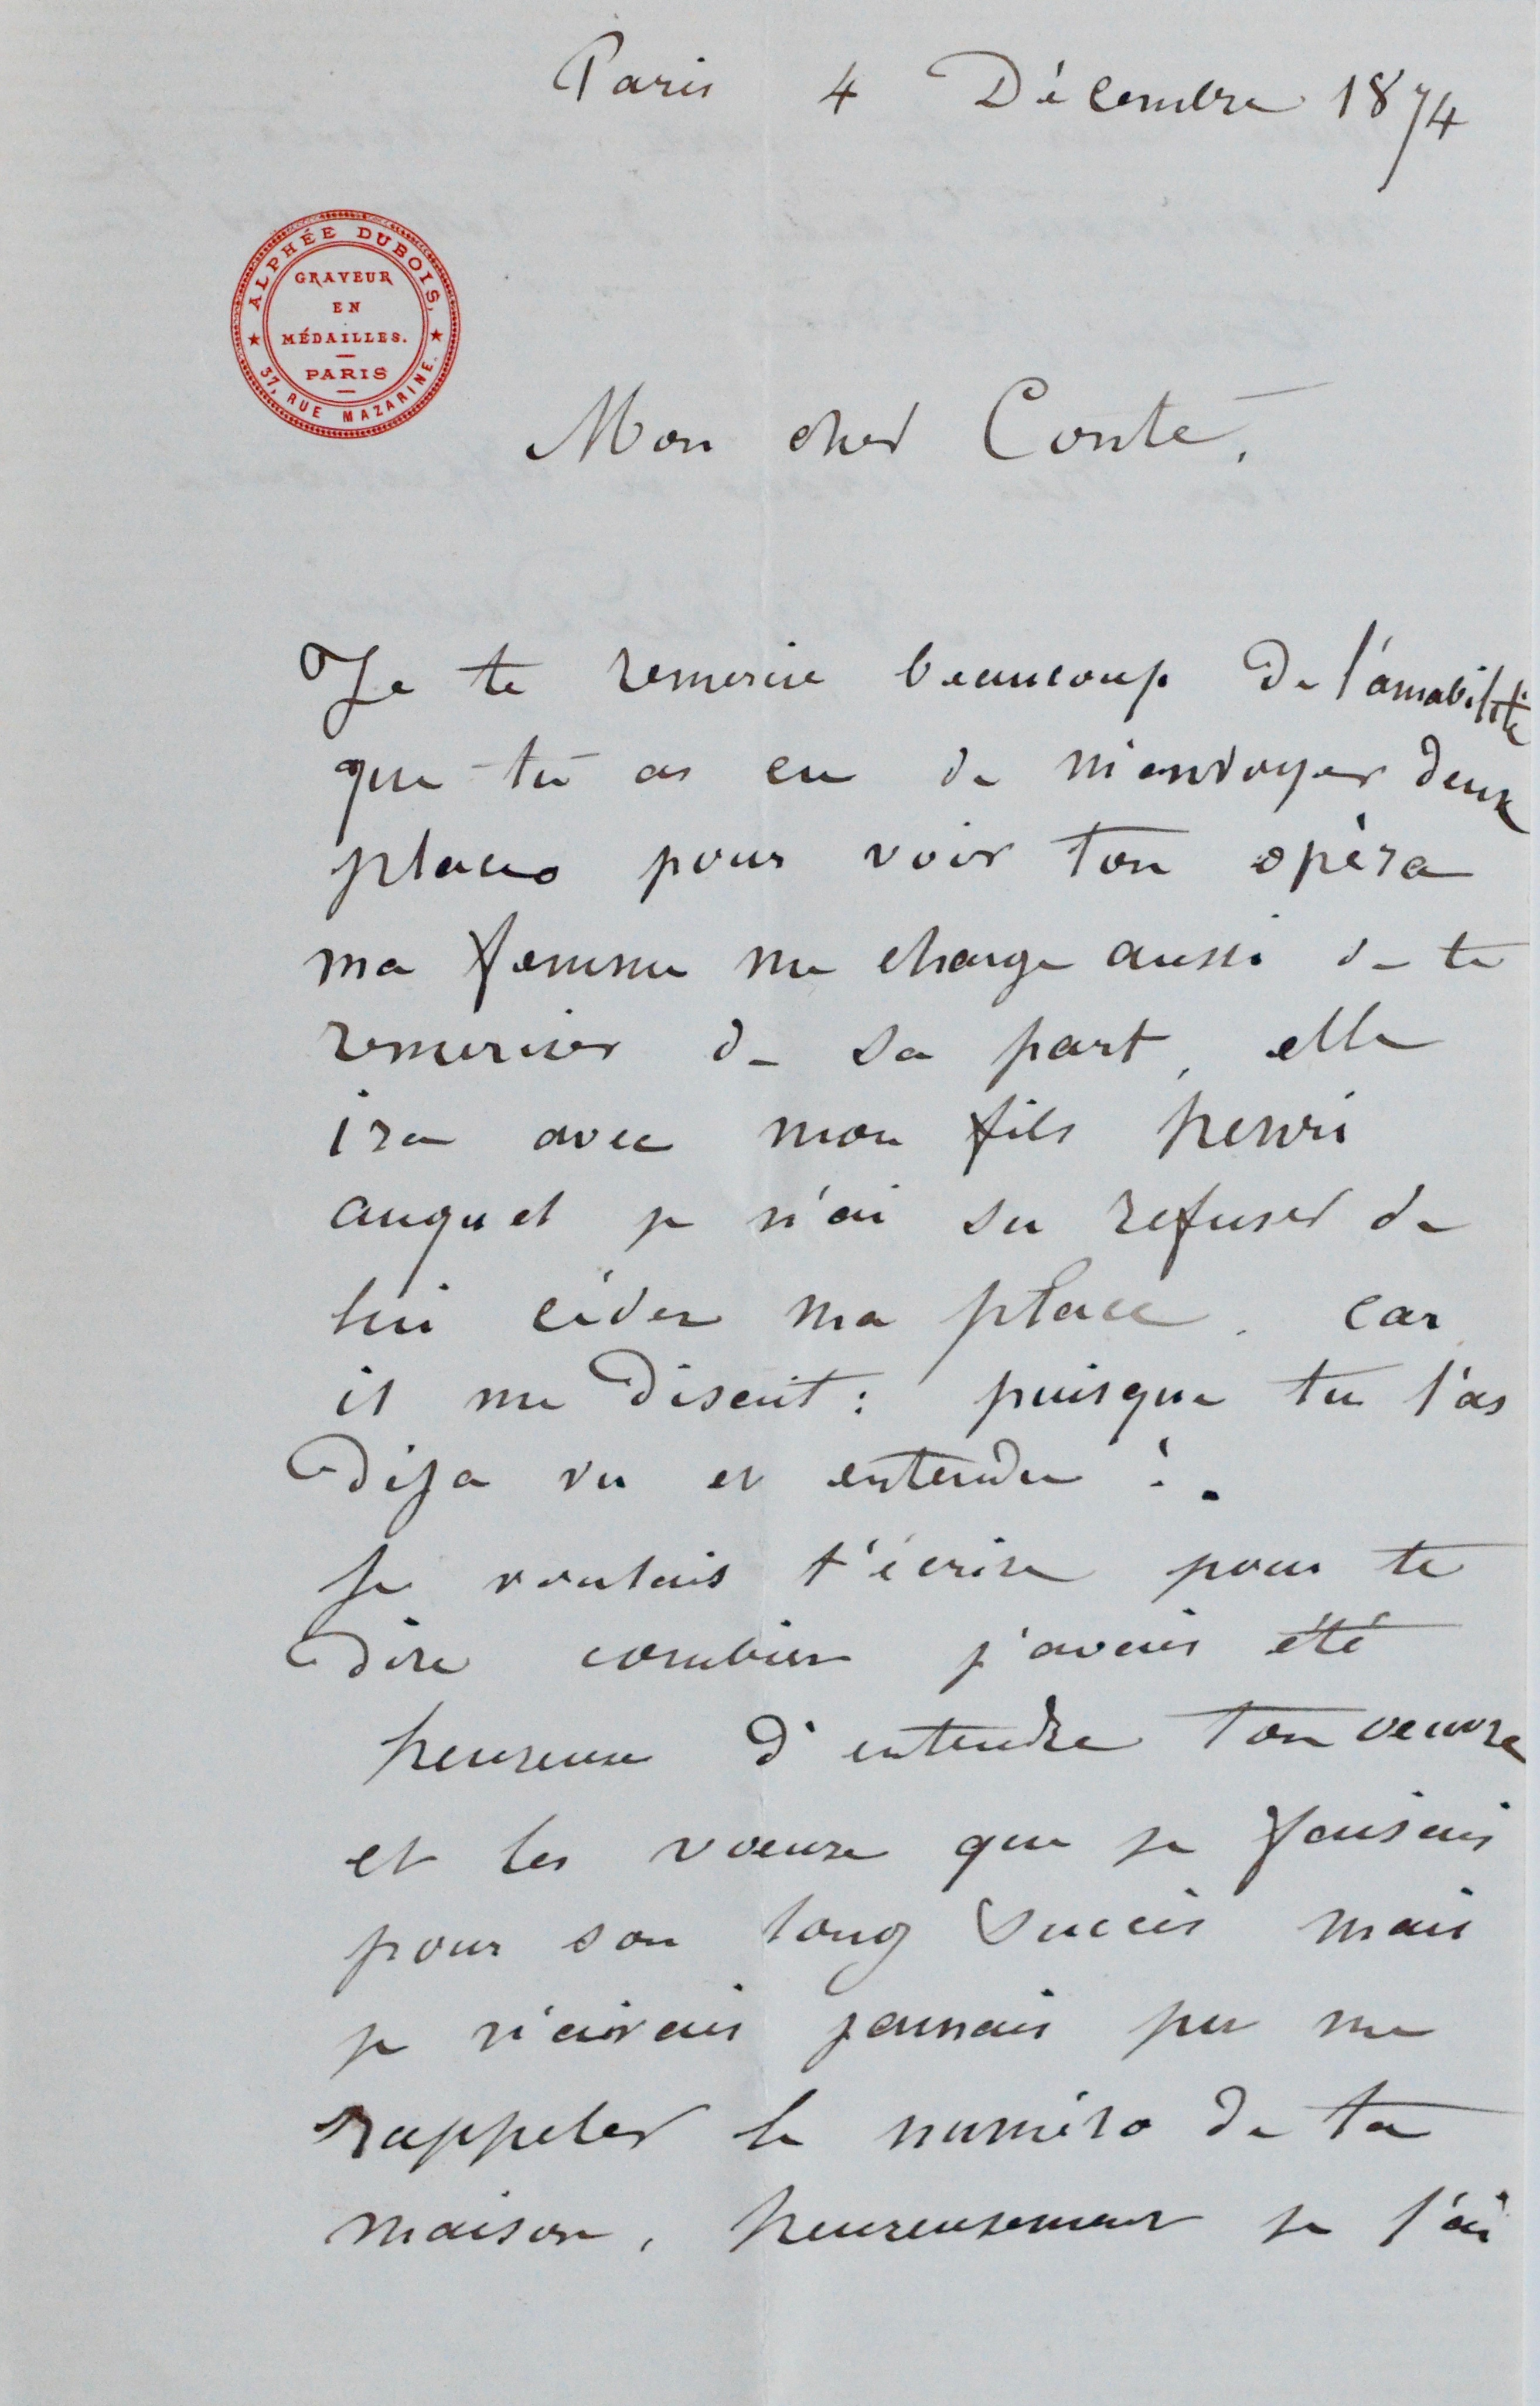 Paris 4 Décembre 1874
ALPHÉE DUBOIS,
GRAVEUR
EN
MÉDAILLES.
PARIS
37, RUE MAZARINE.
Mon cher Conte,
Je te remercie beaucoup de l'amabilité
que tu as eu de m'envoyer deux
places pour voir ton opéra
ma femme me charge aussi de te
remercier de sa part, elle
ira avec mon fils henri
auquel je n'ai su refuser de
lui céder ma place. car
il me disait: puisque tu l'as
déja vu et entendu!.
Je voulais t'écrire pour te
dire combien j'avais été
heureux d'entendre ton oeuvre
et les voeux que je faisais
pour son long succès mais
je n'avais jamais pu me
rappeler le numéro de ta
maison, heureusement je l'ai